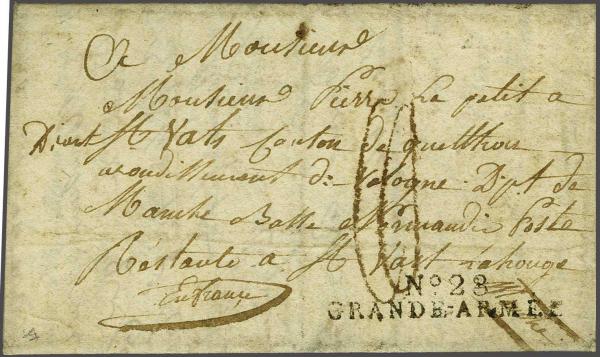 A Monsieur
Monsieur Pierre Le petit a
St Vats Canton de quetthou
arondissement de Valogne Dpt de
Manche Basse Normandie Poste
Réstante a St Vast Lahougue
En france
No 28
GRANDE-ARMÉE